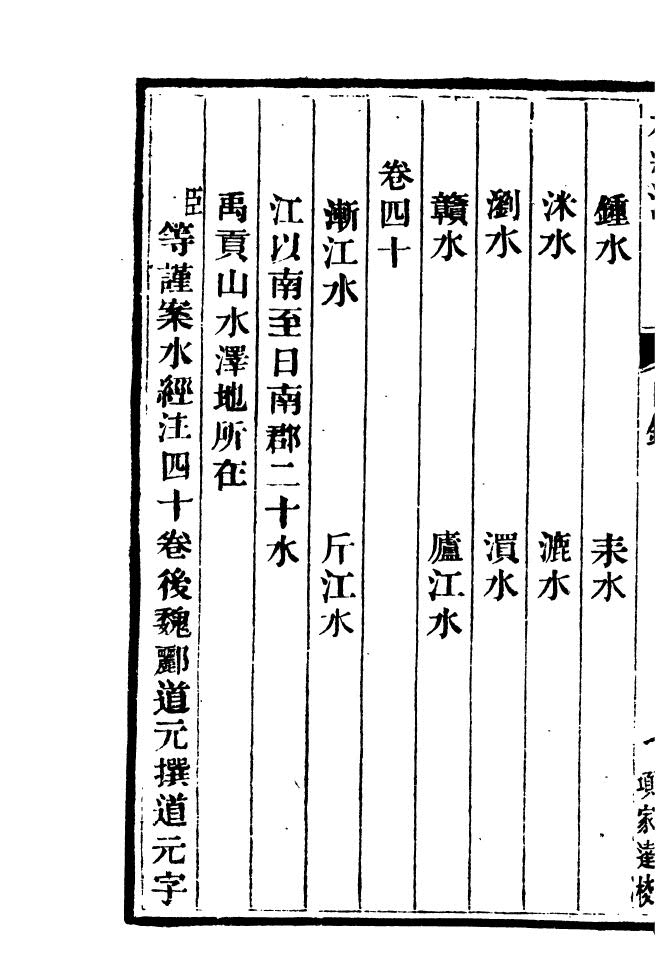 鍾水 耒水
洣水 漉水
瀏水 㵋水
贛水 廬江水
卷四十
漸江水 斤江水
江以南至日南郡二十水
禹貢山水澤地所在
臣等謹案水經注四十卷後魏酈道元撰道元字
項家達校